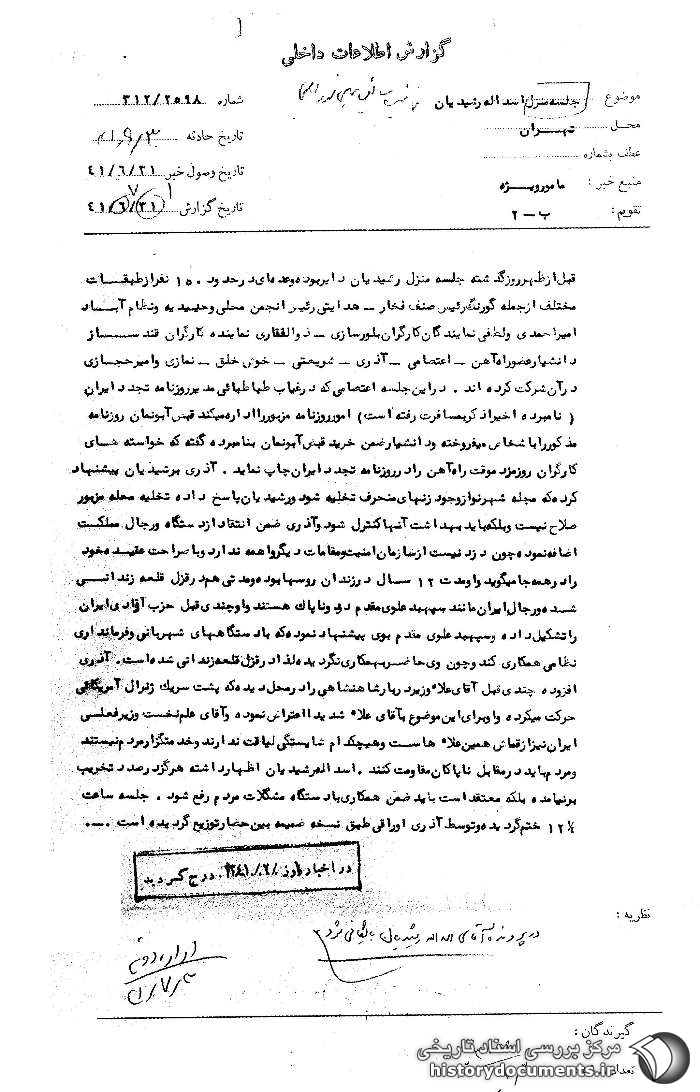 گزارش اطلاعات داخلی
موضوع جلسه منزل اسداله رشیدیان
شماره ۳۱۲/۲۵۹۸
محل تهران
تاریخ حادثه
عطف بشماره
تاریخ وصول خبر ۴۱/۶/۳۱
منبع خبر : مامورویژه
تاریخ گزارش ۴۱/۶/۳۱
۷ ۱
تقویم : ب – ۲
قبل از ظهر روز گذشته جلسه منزل رشیدیان دایر بوده و عده ای در حدود ۱۵۰ نفر از طبقات
مختلف از جمله گورنگ رئیس صنف فخار – هدایتی رئیس انجمن محلی وحیدیه و نظام آباد
امیراحمدی ولطفی نمایندگان کارگران بلورسازی – ذوالفقاری نماینده کارگران قند ساز
دانشیار عضو راه آهن – اعتصامی – آذری – شریعتی – خوش خلق – نمازی و امیرحجازی
در آن شرکت کرده اند . در این جلسه اعتصامی که در غیاب طباطبائی مدیر روزنامه تجدد ایران
( نامبرده اخیراً بمسافرت رفته است ) امور روزنامه مزبور را اداره میکند قبض آبونمان روزنامه
مذکور را باشخاص میفروخته و دانشیار ضمن خرید قبض آبونمان بنامبرده گفته که خواسته های
کارگران روزمزد موقت راه آهن را در روزنامه تجدد ایران چاپ نماید . آذری برشیدیان پیشنهاد
کرده که محله شهرنو از وجود زنهای منحرف تخلیه شود و رشیدیان پاسخ داده تخلیه محله مزبور
صلاح نیست وبلکه باید بهداشت آنها کنترل شود و آذری ضمن انتقاد از دستگاه و رجال مملکت
اضافه نموده چون دزد نیست از سازمان امنیت و مقامات دیگر واهمه ندارد و با صراحت عقیده خود
را در همه جا میگوید و او مدت ۱۲ سال در زندان روسها بوده و مدتی هم در قزل قلعه زندانی
شده و رجال ایران مانند سپهبد علوی مقدم دزد و ناپاک هستند و او چندی قبل حزب آزادی ایران
را تشکیل داده و سپهبد علوی مقدم بوی پیشنهاد نموده که با دستگاههای شهربانی و فرمانداری
نظامی همکاری کند و چون وی حاضر بهمکاری نگردیده لذا در قزل قلعه زندانی شده است. آذری
افزوده چندی قبل آقای علاء وزیر دربار شاهنشاهی را در محل دیده که پشت سر یک ژنرال آمریکائی
حرکت میکرده و او برای این موضوع بآقای علاء شدیداً اعتراض نموده و آقای علم نخست وزیر فعلی
ایران نیز از قماش همین علاء هاست و هیچکدام شایستگی لیاقت ندارند و خدمتگزار مردم نیستند
و مردم باید در مقابل ناپاکان مقاومت کنند . اسداله رشیدیان اظهار داشته هرگز درصدد تخریب
برنیامده بلکه معتقد است باید ضمن همکاری با دستگاه مشکلات مردم رفع شود . جلسه ساعت
۱۲½ ختم گردیده و توسط آذری اوراقی طبق نسخه ضمیمه بین حضار توزیع گردیده است .
در اخبار روز درج گردید
نظریه :
در پرونده آقای اسداله رشیدیان بایگانی شود
گیرندگان :
مرکز بررسی اسناد تاریخی
historydocuments.ir